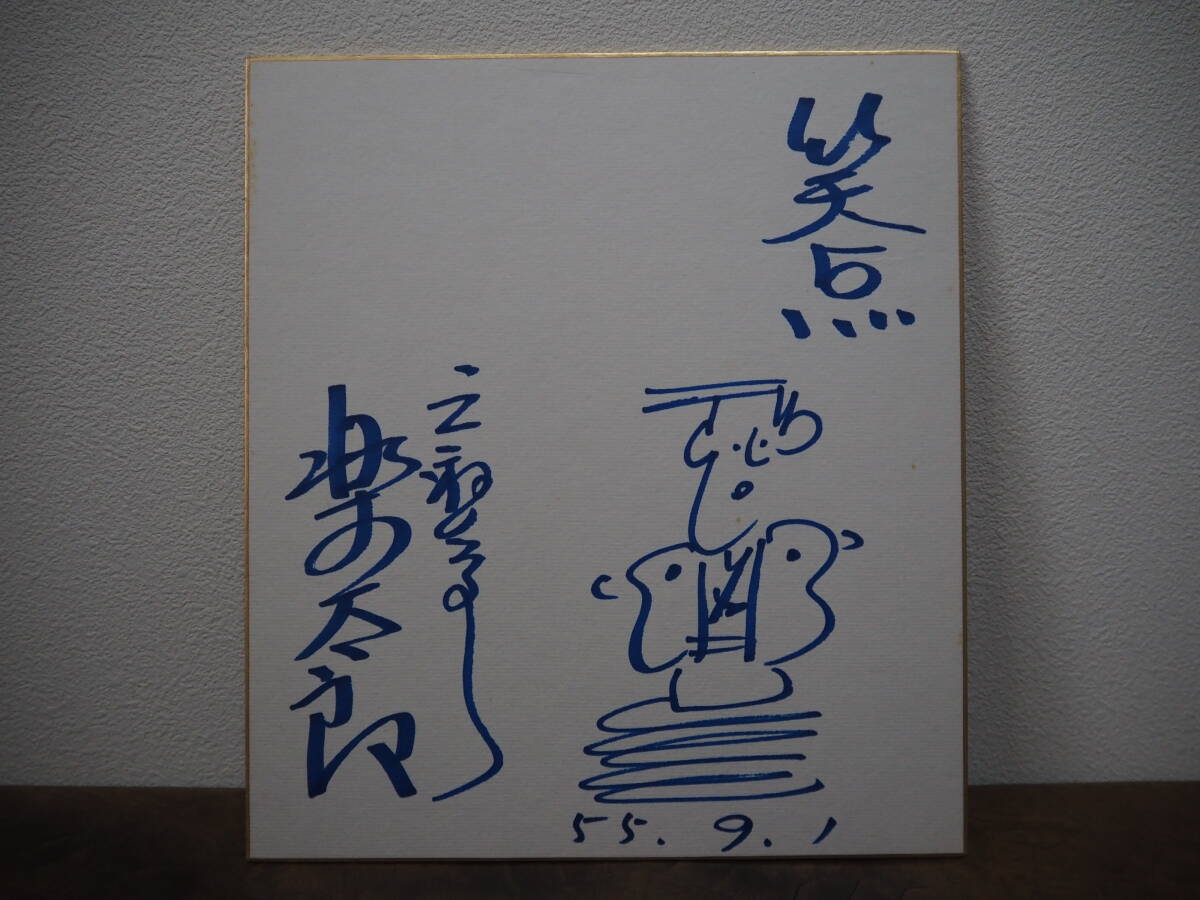 笑点
三遊亭
楽太郎
55.9.1